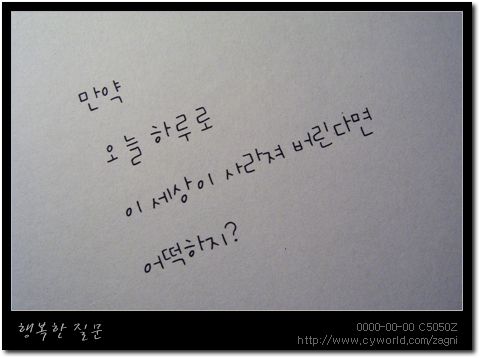 만약
오늘 하루로
이 세상이 사라져 버린다면
어떡하지?
행복한 질문
0000-00-00 C5050Z
http://www.cyworld.com/zagni